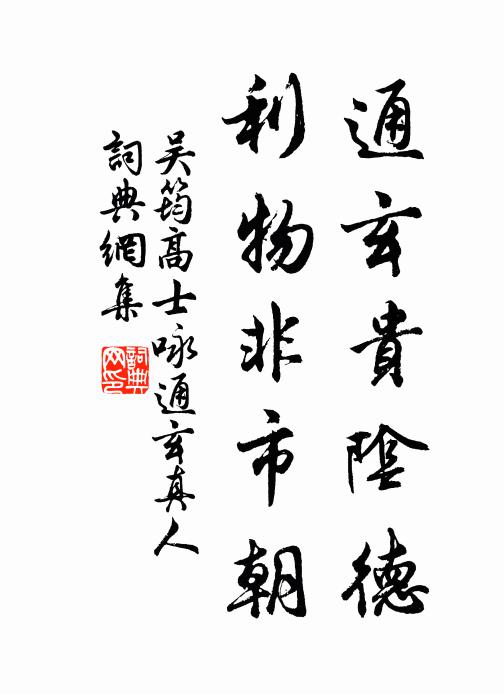 通玄貴陰德
利物非市朝
吴筠高士咏通玄真人
詞典網集
詞典
网印